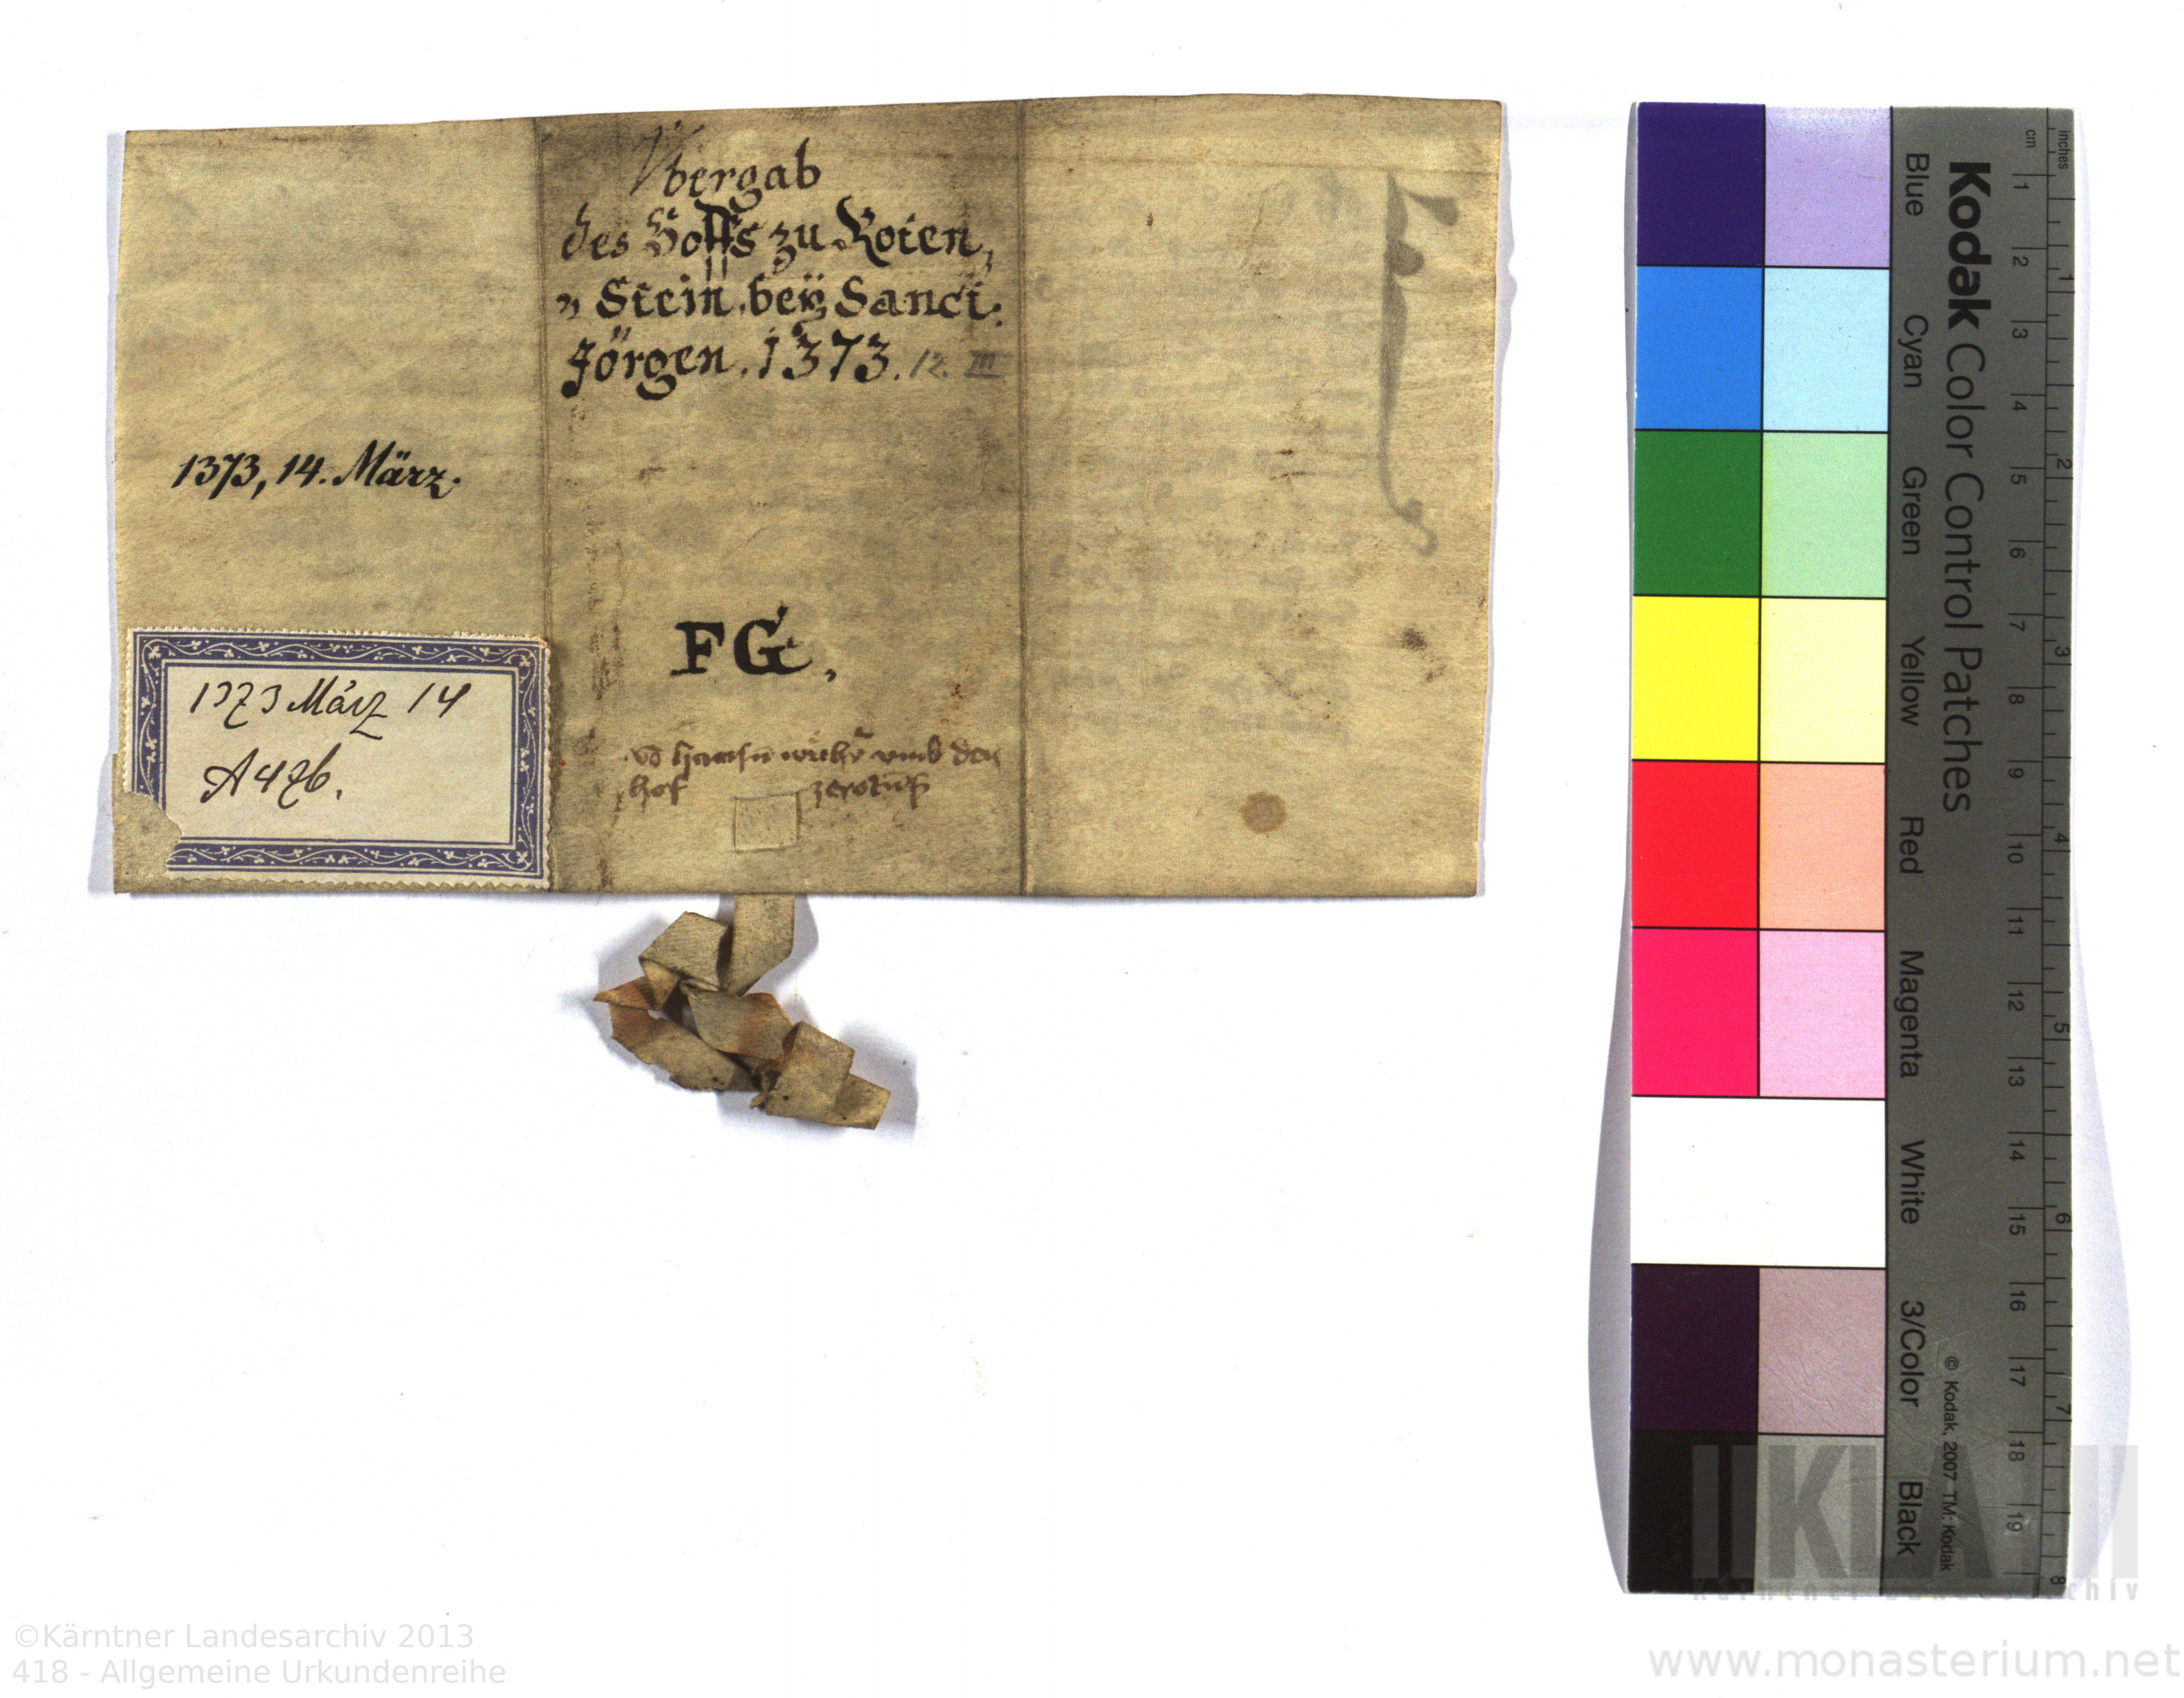 Vbergab
des Hoffs zu Roten,
„ Stein. beÿ Sanct.
Jörgen. 1373. 12. III
1373, 14. März.
FG.
1373 März 14
A 476.
vmb den
hof
Kodak Color Control Patches
Blue Cyan Green Yellow Red Magenta White 3/Color Black
© Kodak, 2007 TM: Kodak
cm 1 2 3 4 5 6 7 8 9 10 11 12 13 14 15 16 17 18 19
inches 1 2 3 4 5 6 7 8
KLA
©Kärntner Landesarchiv 2013
418 - Allgemeine Urkundenreihe
www.monasterium.net